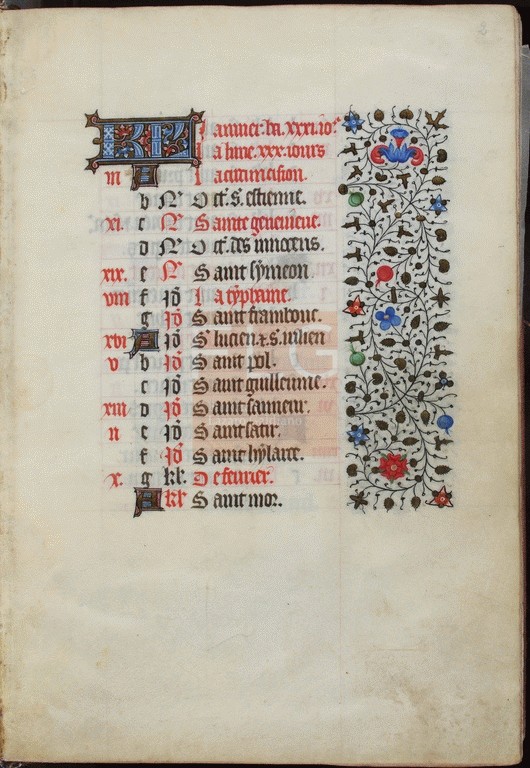 KL Januier. ha. xxxi. io⁹
La lune. xxx. iours
iii A La circuncision.
b N Oct. s. estienne.
xi. c N Sainte geneuieue.
d N Oct. des innocens.
xix. e N Saint symeon.
viii f id La typhaine.
g id Saint frambout.
xvi A id S. lucien. & s. iulien
v b id Saint pol.
c id Saint guillemme.
xiii d id Saint sauueur.
ii e id Saint satir.
f id Saint hylaire.
x. g kl. De feurier.
A kl Saint mor.